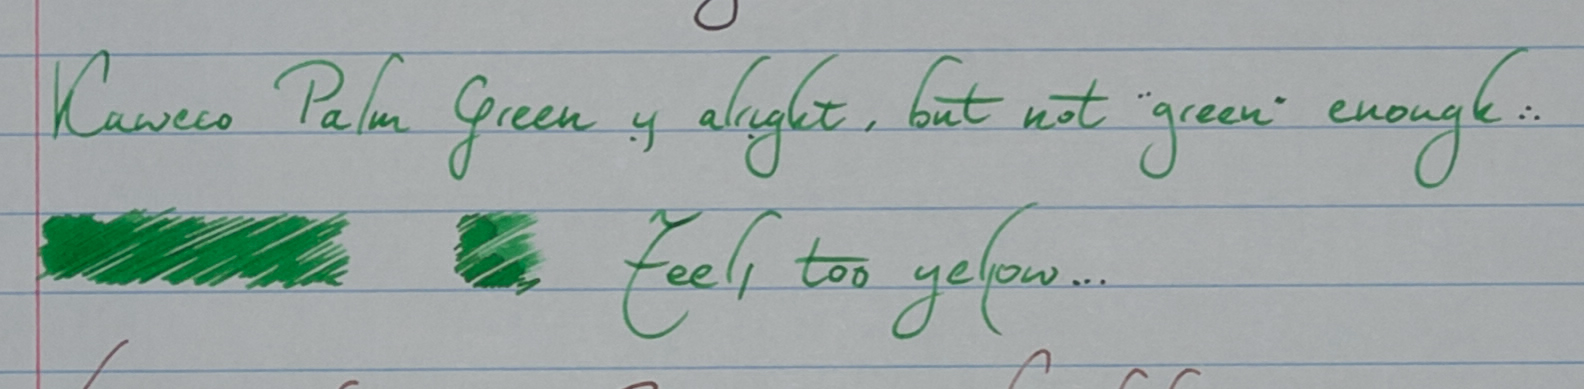 Kaweco Palm Green is alright, but not "green" enough...
Feels too yellow...